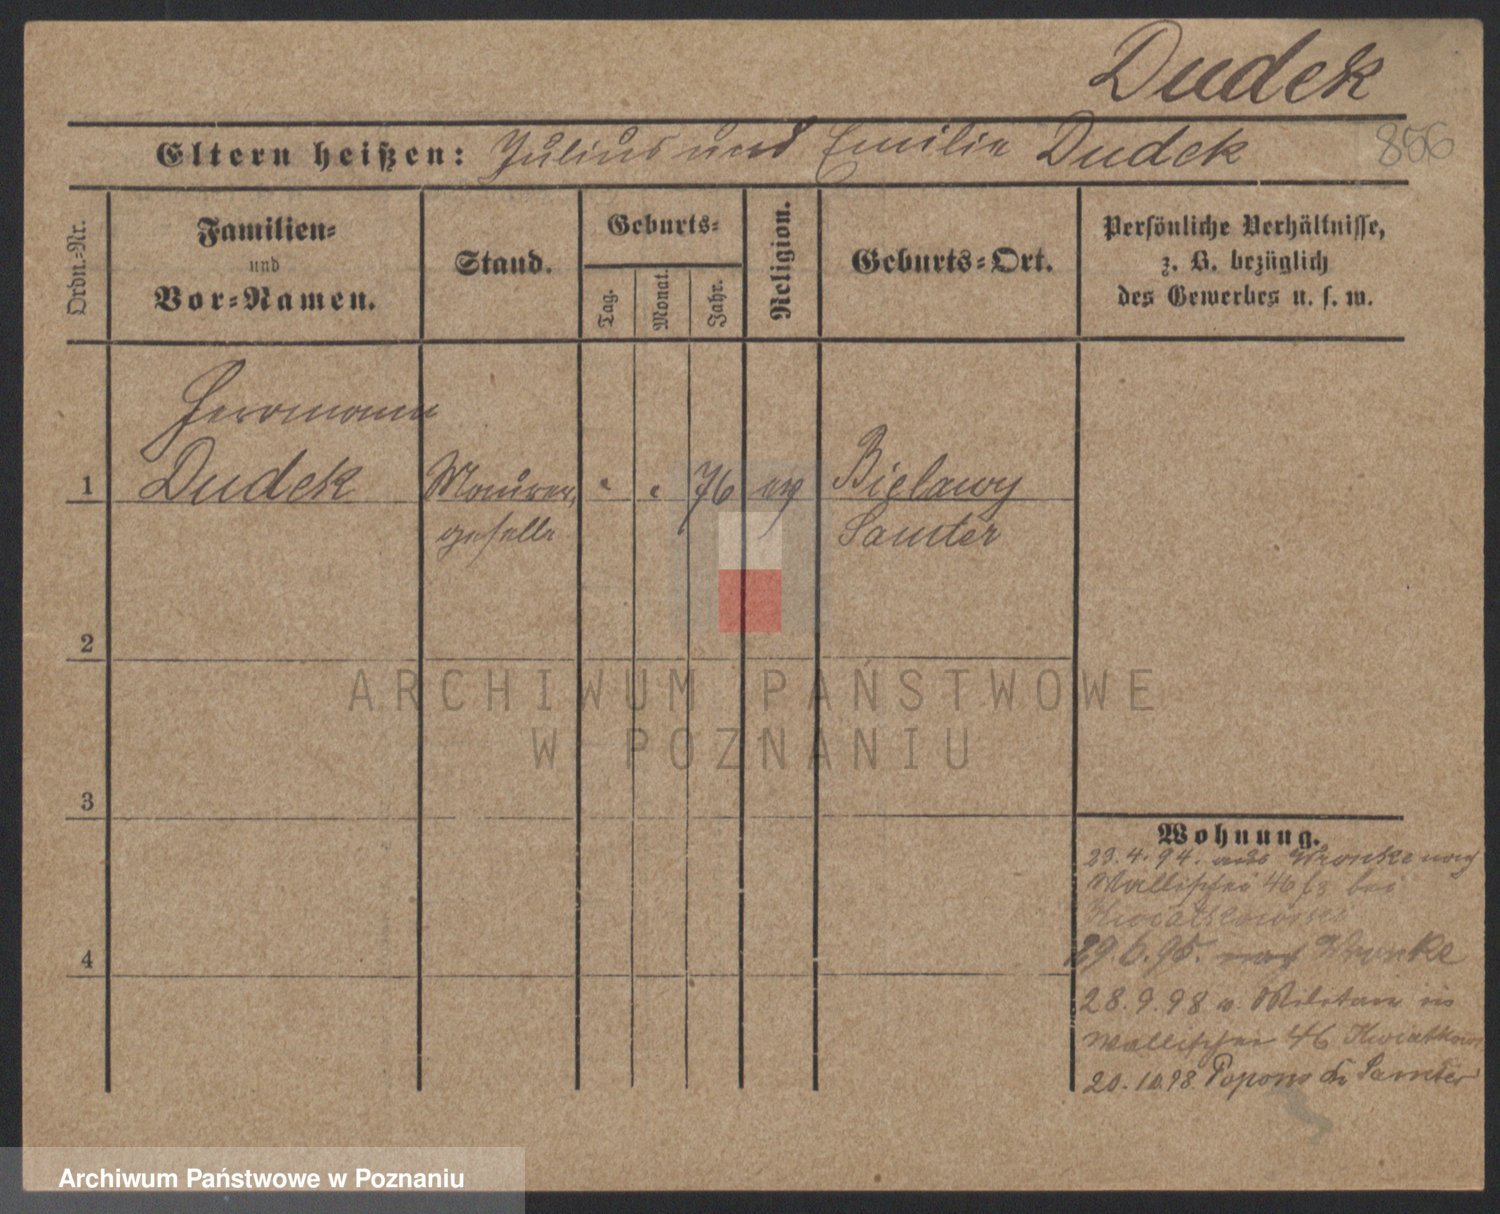 Dudek
856
Eltern heißen: Julius und Emilie Dudek
Ordn.-Nr.
Familien-
und
Vor-Namen.
Stand.
Geburts-
Tag.
Monat.
Jahr.
Religion.
Geburts-Ort.
Persönliche Verhältnisse,
z. B. bezüglich
des Gewerbes u. s. w.
Herrmann
1 Dudek Maurer, 76 ev Bielawy
geselle Samter
2
ARCHIWUM PAŃSTWOWE
W POZNANIU
3
Wohnung.
23.4.94. aus Wronke nach
Wallischei 46 bei
Kwiatkowski
4
29.6.95. nach Wronke
28.9.98 v. Militair in
Wallischei 46 Kwiatkow
20.10.98. Samter
Archiwum Państwowe w Poznaniu